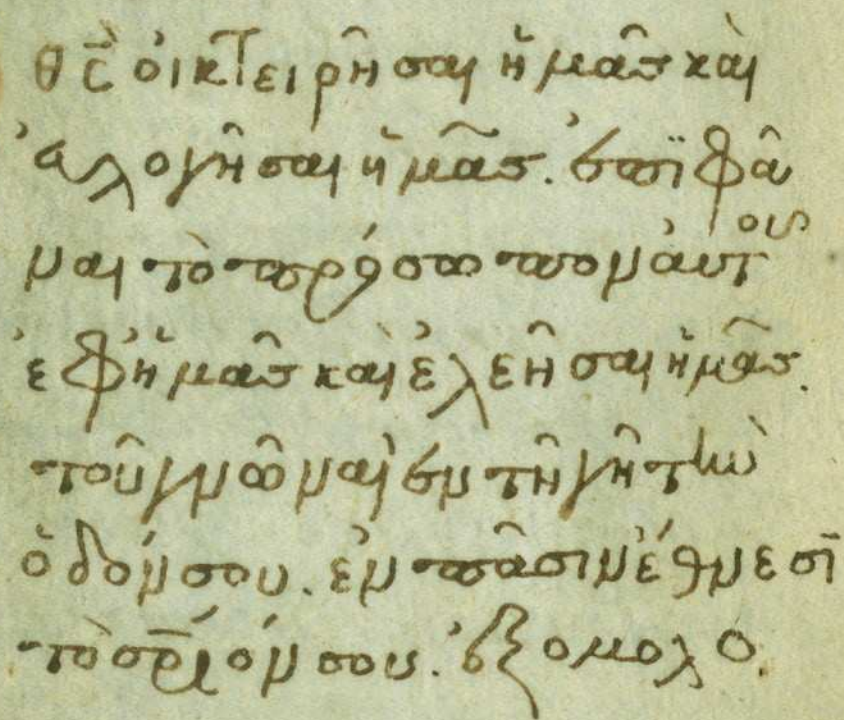 θ̅ς̅ οἰκτειρῆσαι ἡμᾶς καὶ
ἐυλογῆσαι ἡμᾶς. ἐπϊφᾶ
ναι τὸ πρόσωπον ἀυτοῦ
ἐφἡμᾶς καὶ ἐλεῆσαι ἡμᾶς.
τοῦ γνῶναι ἐν τῆ γῆ τὴν
ὁδόν σου. ἐν πᾶσιν ἔθνεσι
τὸ σ̅ρ̅ιόν σου. ἐξομολο